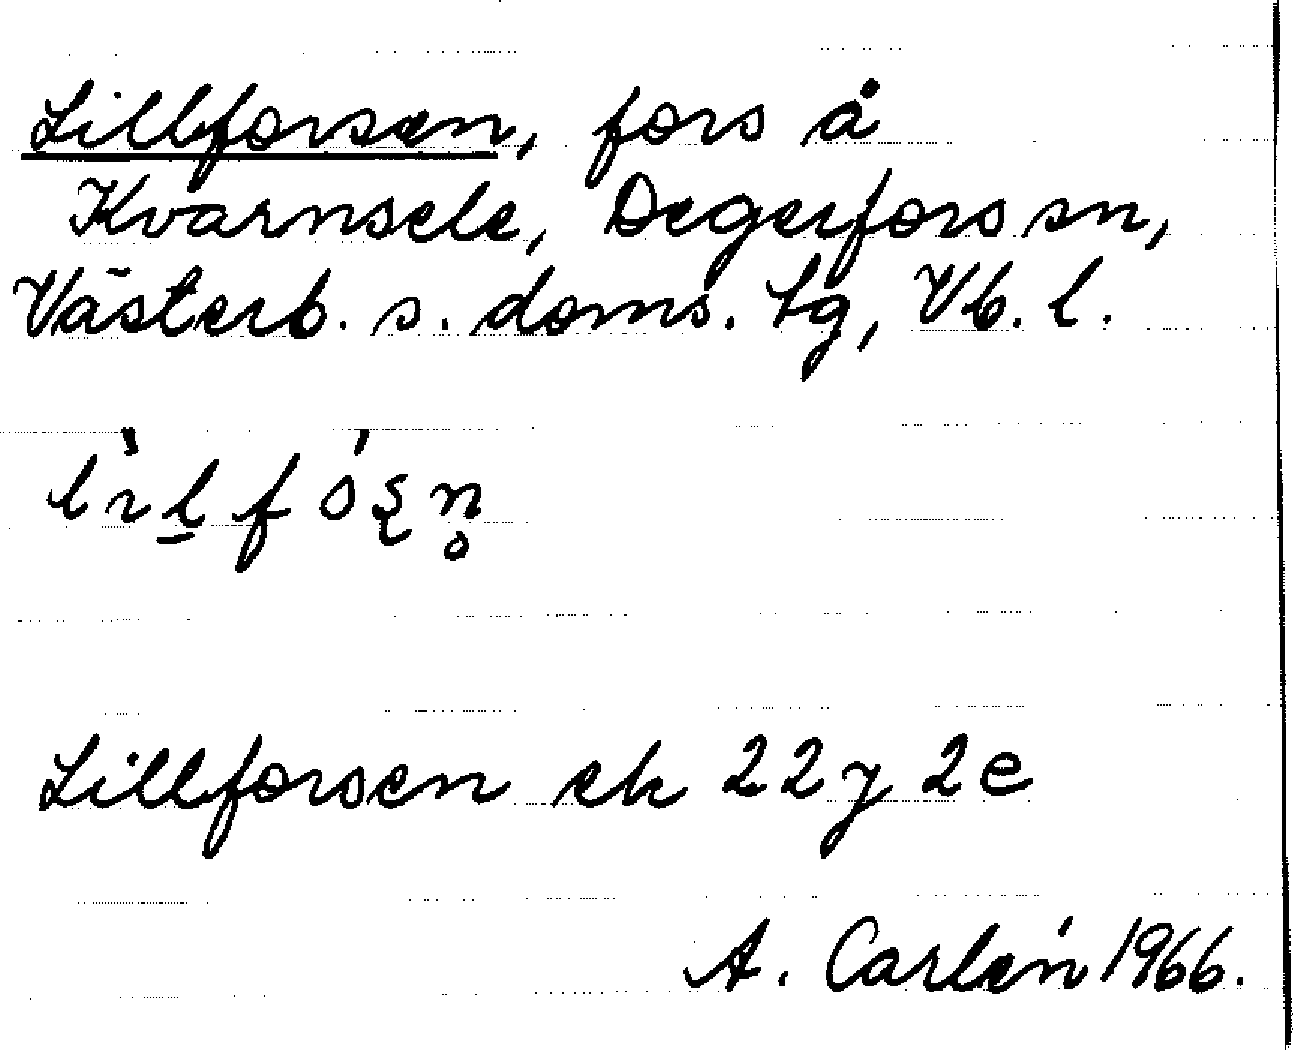 Lillforsen, fors å
Kvarnsele, Degerfors sn,
Västerb. s. doms. tg, Vb. l.
Lillforsen ek 22 y 2 e
A. Carlén 1966.